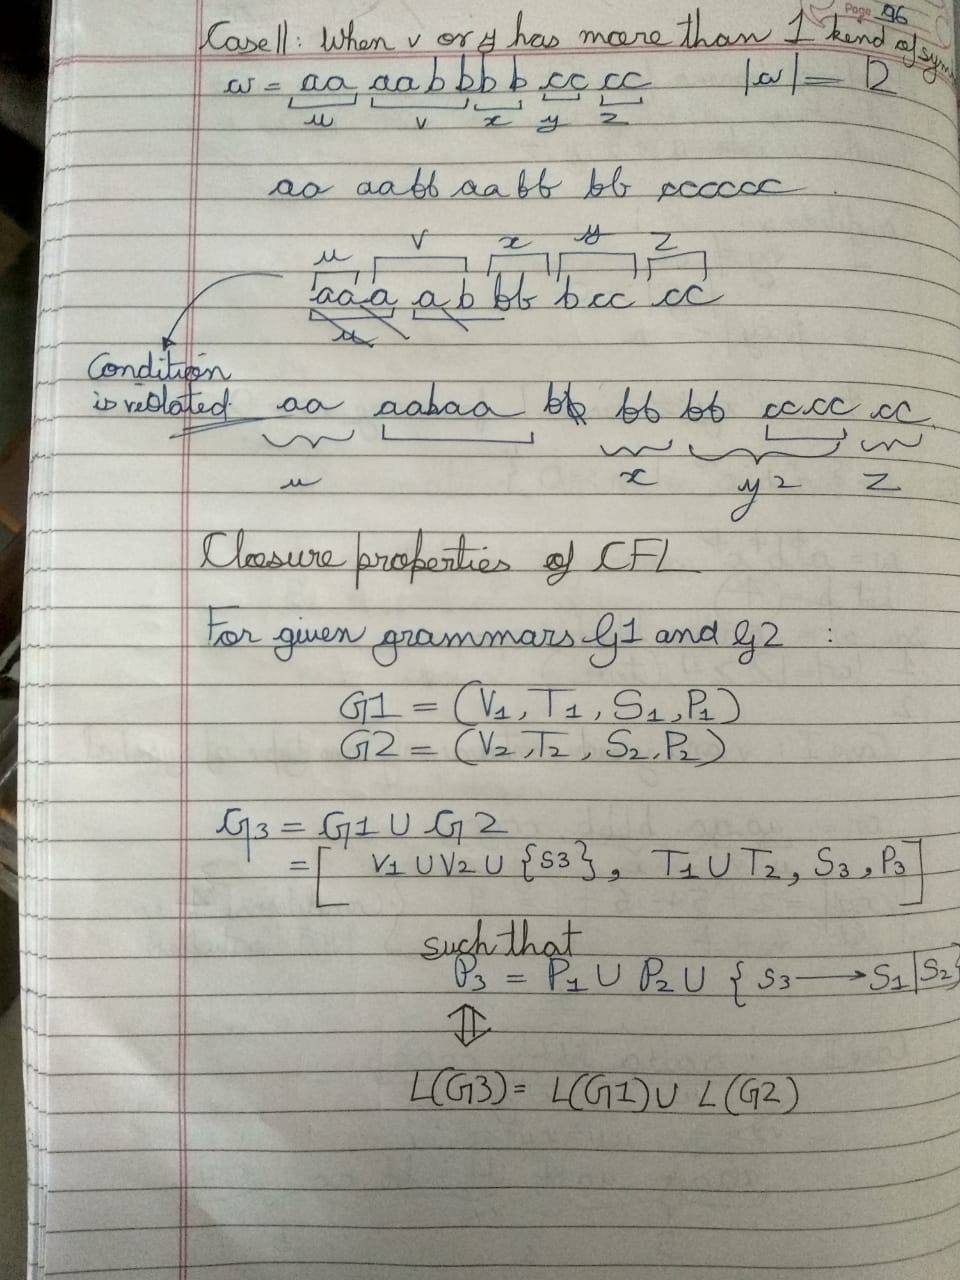 Page 96
Case II: When v or y has more than 1 kind of sym
w = aa aabb bb cc cc |w| = 12
u v x y z
aa aabb aabb bb cccccc
u v x y z
aaa ab bb bcc cc
u
Condition
is voilated aa aabaa bb bb bb cccc cc
u x y2 z
Closure properties of CFL
For given grammars G1 and G2 :
G1 = (V1, T1, S1, P1)
G2 = (V2, T2, S2, P2)
G3 = G1 U G2
= [ V1 U V2 U {S3}, T1 U T2, S3, P3 ]
such that
P3 = P1 U P2 U { S3 → S1|S2}
⇕
L(G3) = L(G1) U L(G2)